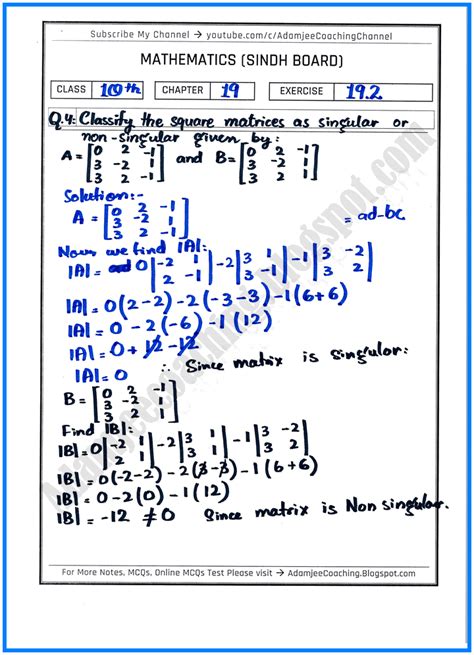 Subscribe My Channel → youtube.com/c/AdamjeeCoachingChannel
MATHEMATICS (SINDH BOARD)
CLASS 10th CHAPTER 19 EXERCISE 19.2
Q.4: Classify the square matrices as singular or
non-singular given by:
A = [0 2 -1
3 -2 1
3 2 -1] and B = [0 2 -1
3 -2 1
3 2 1]
Solution:-
A = [0 2 -1
3 -2 1
3 2 -1] = ad-bc
Now we find |A|:
|A| = 0 |-2 1
2 -1| -2 |3 1
3 -1| -1 |3 -2
3 2|
|A| = 0(2-2) -2(-3-3) -1(6+6)
|A| = 0 -2(-6) -1(12)
|A| = 0 + 12 -12
|A| = 0 ∴ Since matrix is singular:
B = [0 2 -1
3 -2 1
3 2 1]
Find |B|:
|B| = 0 |-2 1
2 1| -2 |3 1
3 1| -1 |3 -2
3 2|
|B| = 0(-2-2) -2(3-3) -1(6+6)
|B| = 0 -2(0) -1(12)
|B| = -12 ≠ 0 Since matrix is Non singular.
For More Notes, MCQs, Online MCQs Test Please visit → AdamjeeCoaching.Blogspot.com
Adamjeecoaching.blogspot.com